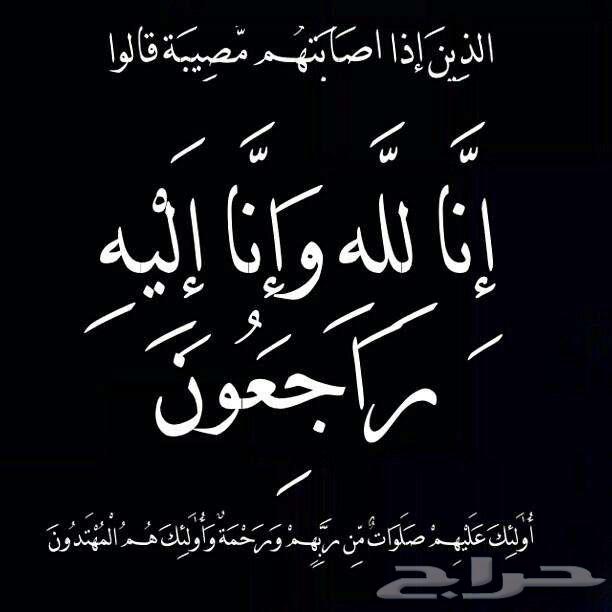 الذِينَ إذا اصَابَتهُم مّصِيبَة قالوا
إنَّا لِلَّه وَإنَّا إلَيْهِ
رَاجَعُونَ
أُوَلَئِكَ عَلَيْهِمْ صَلَوَاتٌ مِّن رَبِّهِمْ وَرَحْمَةٌ وَأُوَلَئِكَ هُمُ الْمُهْتَدُونَ
حراج